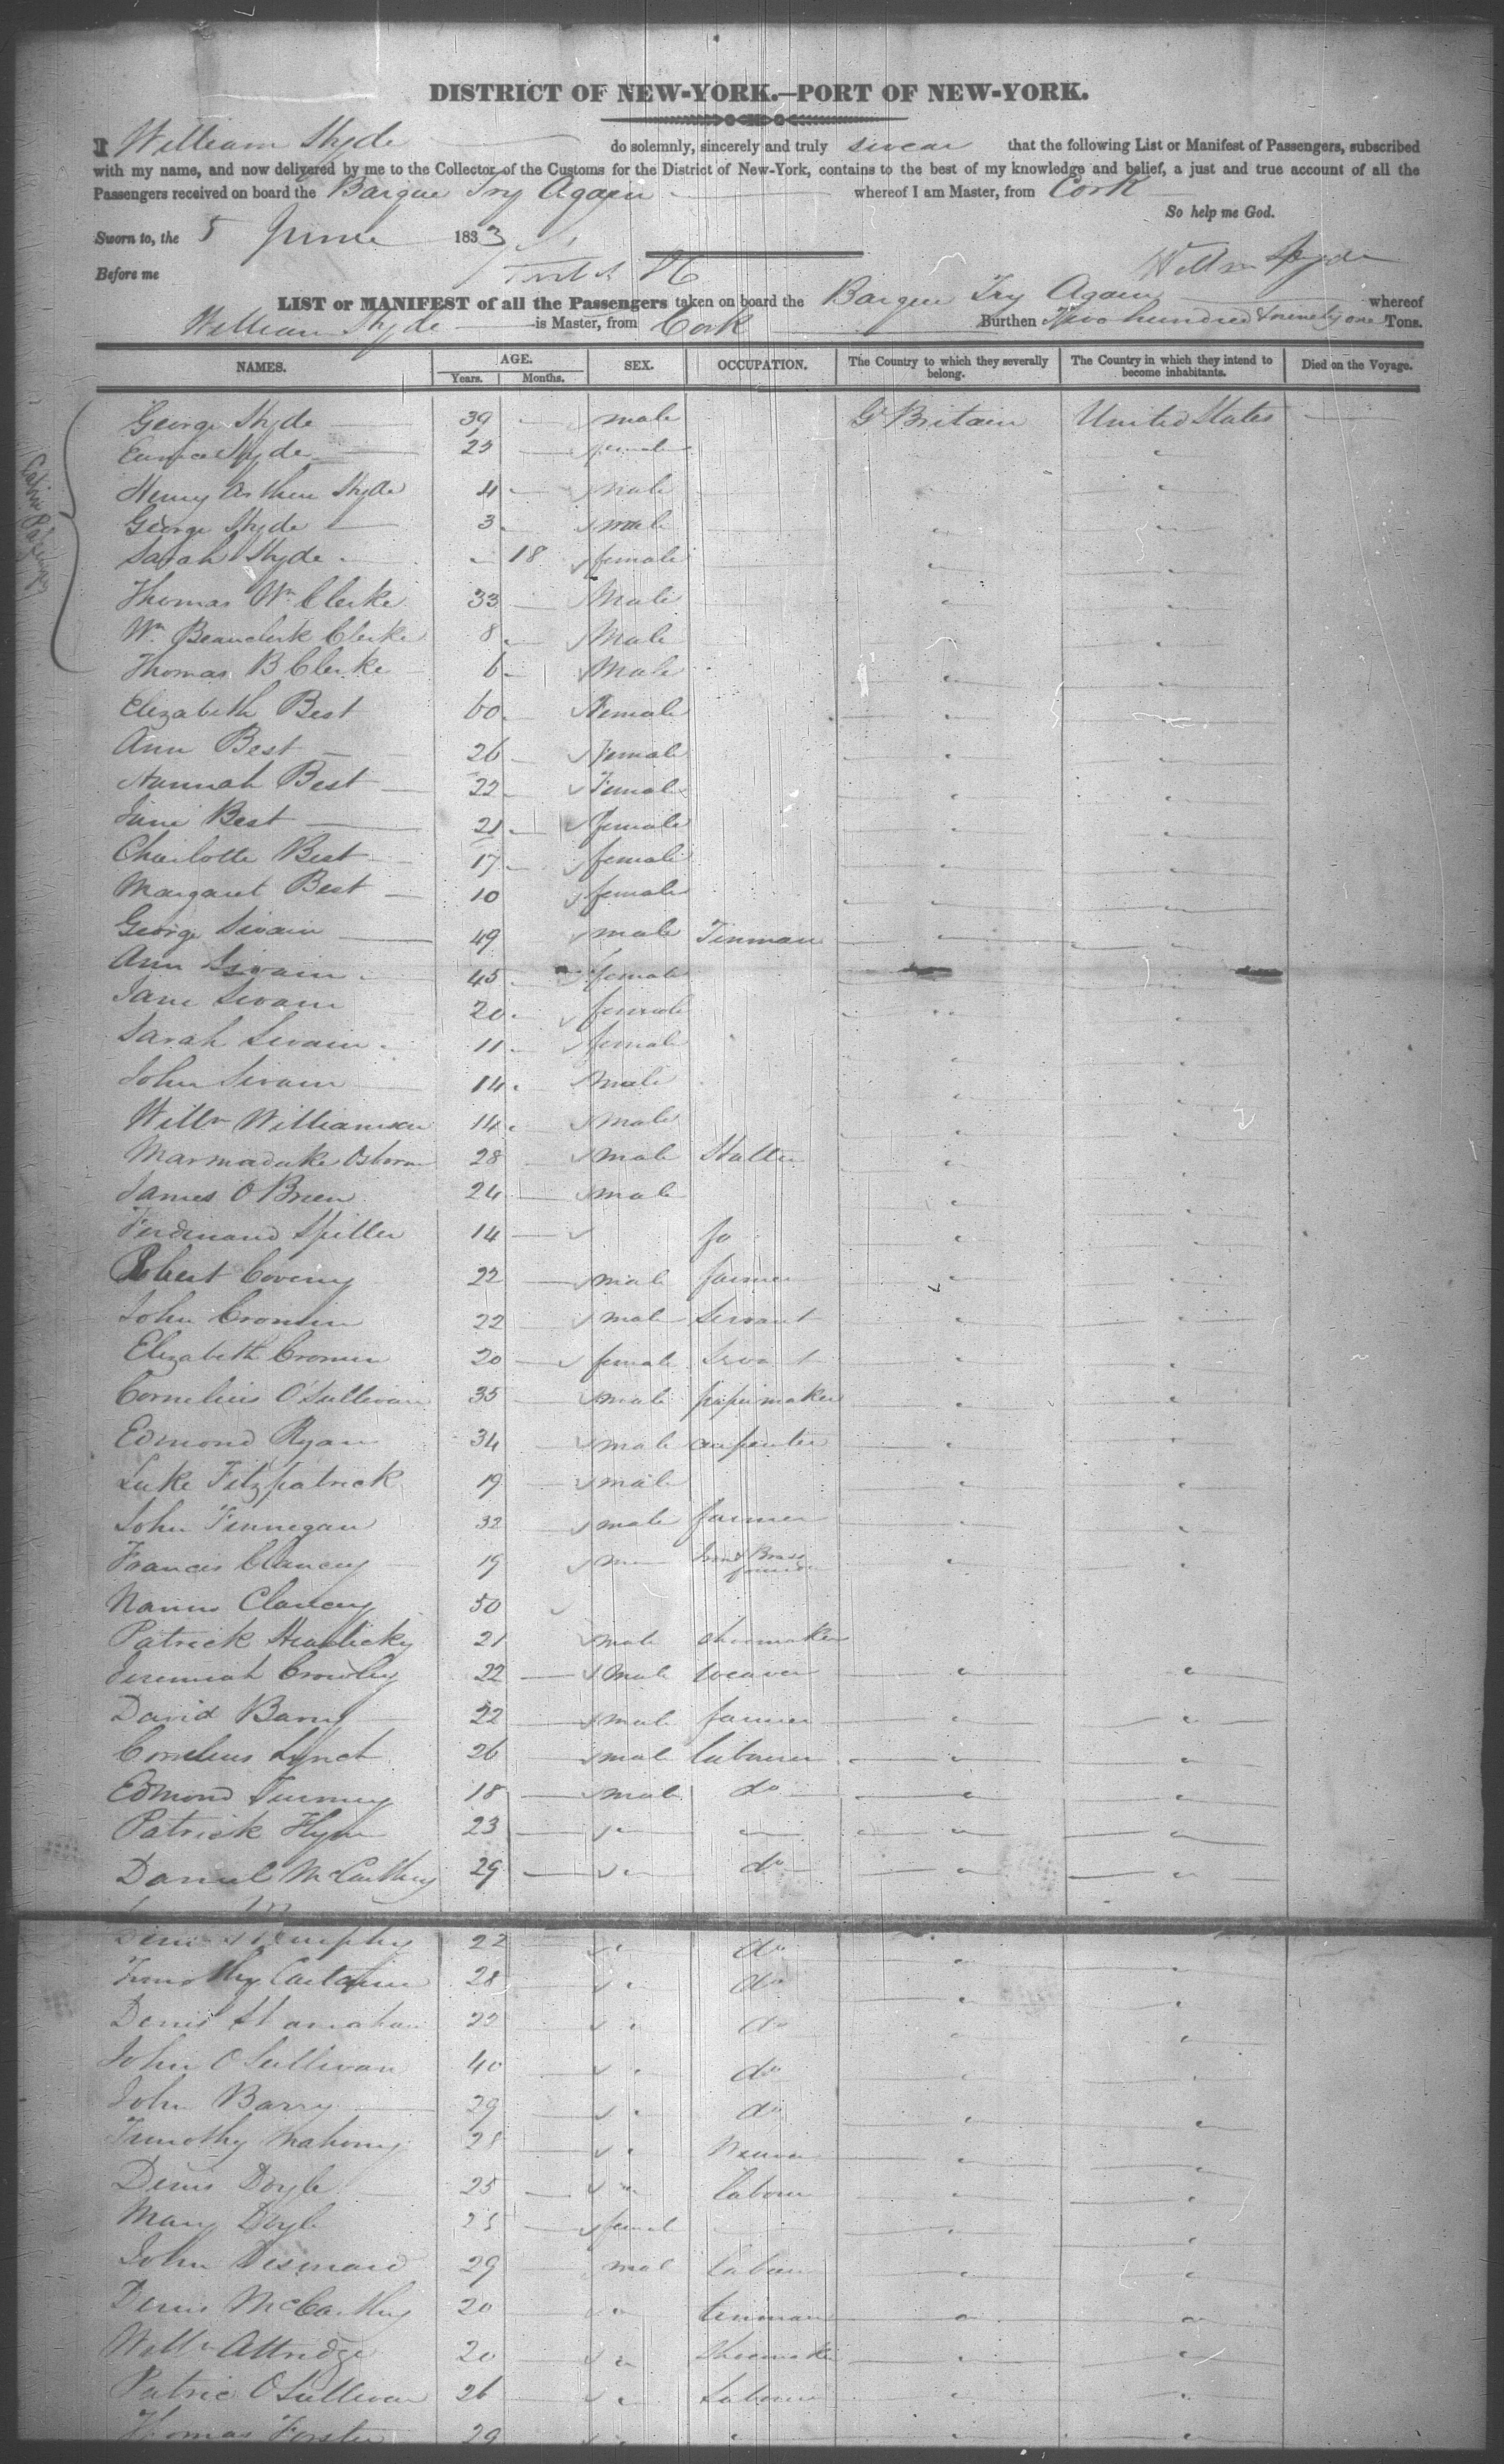 DISTRICT OF NEW-YORK.—PORT OF NEW-YORK.
I William Hyde do solemnly, sincerely and truly swear that the following List or Manifest of Passengers, subscribed
with my name, and now delivered by me to the Collector of the Customs for the District of New-York, contains to the best of my knowledge and belief, a just and true account of all the
Passengers received on board the Barque Try Again whereof I am Master, from Cork
So help me God.
Sworn to, the 5 June 1833
Before me Willm Hyde
LIST or MANIFEST of all the Passengers taken on board the Barque Try Again whereof
William Hyde is Master, from Cork Burthen Two hundred & ninety one Tons.
NAMES. AGE. SEX. OCCUPATION. The Country to which they severally belong. The Country in which they intend to become inhabitants. Died on the Voyage.
Years. Months.
Cabin Passengers
George Hyde 39 male Gt Britain United States
Hyde 25 female
Henry Arthur Hyde 4 male
George Hyde 3 male
Sarah Hyde 18 female
Thomas Wm Clerke 33 Male
Wm Beauclerk Clerke 8 Male
Thomas B Clerke 6 Male
Elizabeth Best 60 Female
Ann Best 26 Female
Hannah Best 22 Female
Jane Best 21 female
Charlotte Best 17 female
Margaret Best 10 female
George Swain 49 male Tinman
Ann Swain 45 female
Jane Swain 20 female
Sarah Swain 11 female
John Swain 14 male
Willm Williamson 14 male
Marmaduke Osborne 28 male Hatter
James O Brien 24 male
Ferdinand Spiller 14 do
Robert Coveny 22 male farmer
John Cronin 22 male Servant
Elizabeth Cronin 20 female Servant
Cornelius O'Sullivan 35 male papermaker
Edmond Ryan 34 male carpenter
Luke Fitzpatrick 19 male
John Finnegan 32 male farmer
Francis Clancey 19 Iron & Brass founder
Clancey 50
Patrick 21 male shoemaker
Jeremiah Crowley 22 male weaver
David Barry 22 male farmer
Cornelius Lynch 26 male labourer
Edmond 18 male do
Patrick Flynn 23
Daniel McCarthy 29 do
Denis Murphy 22 do
Timothy 28 do
Denis 22 do
John O Sullivan 40 do
John Barry 29 do
Timothy Mahony 28
Denis Doyle 25 labourer
Mary Doyle 25 female
John 29 male labourer
Denis McCarthy 20 tinman
Willm Attridge 20 Shoemaker
Patric O'Sullivan 26 Labourer
Thomas Forster 29